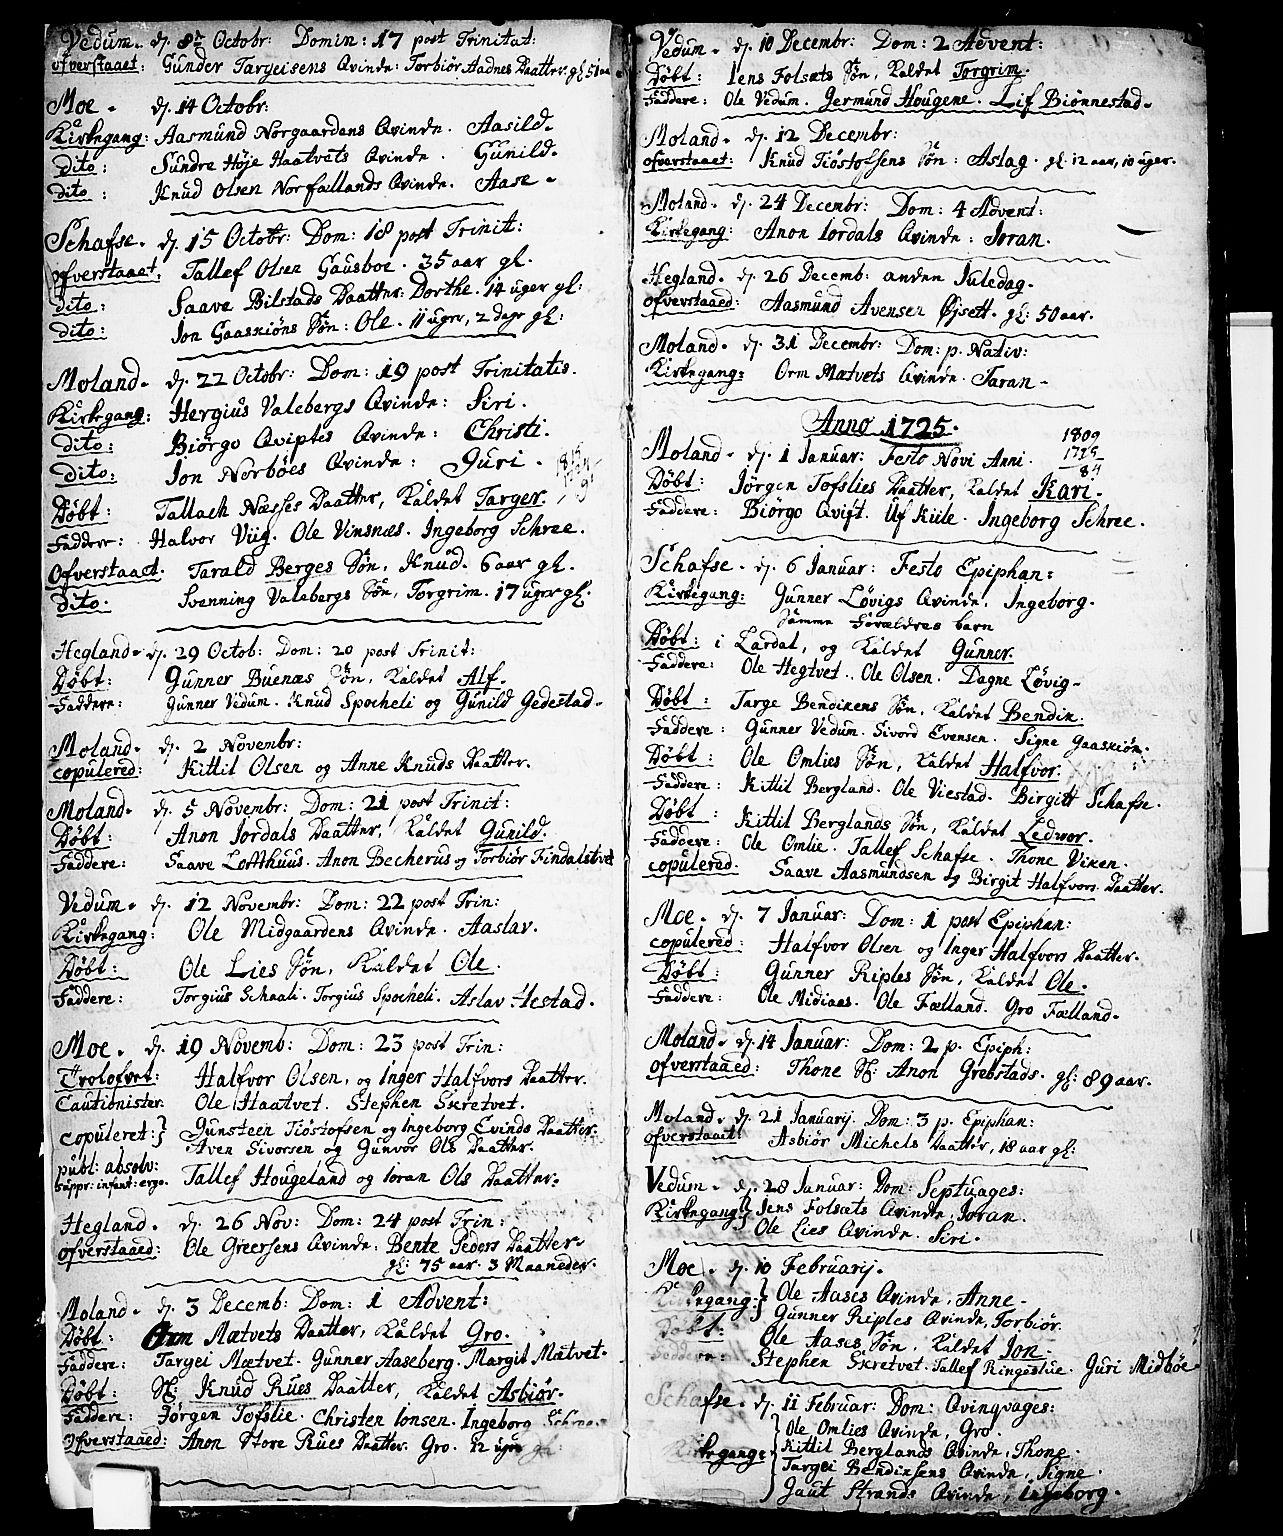 Vedum. d. 8de Octobr: Domin: 17 post Trinitat:
ofverstaaet: Gunder Targeisens Qvinde: Torbiør Hadnes Daatter. gl. 51 aar
Moe. d. 14 Octobr:
Kirkegang: Aasmund Norgaardens Qvinde. Aasild.
Dito: Sundre Høje Haatvets Qvinde. Gunild.
Dito: Knud Olsen Norfallands Qvinde. Aase.
Schafse. d. 15 Octobr: Dom: 18 post Trinit:
ofverstaaet. Tallef Olsen Gausboe. 35 aar gl.
dito: Saave Bilstads Daatter: Dorthe. 14 uger gl:
dito: Jon Gaaskiøns Søn: Ole. 11 uger, 2 dage gl:
Moland. d. 22 Octobr: Dom: 19 post Trinitatis.
Kirkegang: Hergius Valebergs Qvinde: Siri.
dito: Biørgo Qviptes Qvinde: Christi.
dito: Jon Norbøes Qvinde: Guri.
Døbt: Tallach Næsses Daatter, kaldet Targer.
Faddere: Halvor Viig. Ole Vinsnæs. Ingeborg Schree.
Ofverstaaet. Tarald Berges Søn, Knud. 6 aar gl.
dito. Svenning Valebergs Søn, Torgrim. 17 uger gl.
Hegland. d. 29 Octob: Dom: 20 post Trinit:
Døbt: Gunner Buenæs Søn, kaldet Alf.
Faddere: Gunner Vedum. Knud Spocheli og Gunild Gedestad.
Moland. d. 2 Novembr:
copulered: Kittil Olsen og Anne Knuds Daatter.
Moland. d. 5 Novembr: Dom: 21 post Trinit:
Døbt: Anon Jordals Daatter, kaldet Gunild.
Faddere: Saave Lofthuus. Anon Becherus og Torbiør Findalstvet
Vedum. d. 12 Novembr: Dom: 22 post Trin:
Kirkegang: Ole Midgaardens Qvinde. Aaslav.
Døbt: Ole Lies Søn, kaldet Ole.
Faddere: Torgius Schaali. Torgius Spocheli. Aslav Hestad.
Moe. d. 19 Novemb: Dom: 23 post Trin:
Trolofvet: Halfvor Olsen, og Inger Halfvors Daatter.
Cautionister. Ole Haatvet. Stephen Skretvet.
copuleret: } Gunsteen Tiøstofsen og Ingeborg Evinds Daatter.
Aven Sivorsen og Gunvor Ols Daatter.
publ: absolv: Tallef Hougeland og Ioran Ols Daatter.
suppr: infant: ergo.
Hegland. d. 26 Nov: Dom: 24 post Trin:
ofverstaaed: Ole Greersens Qvinde: Bente Peders Daatter
gl: 75 aar. 3 Maaneder.
Moland. d. 3 Decemb: Dom: 1 Advent:
Døbt: Orm Mætvets Daatter, kaldet Gro.
Faddere: Targei Mætvet. Gunner Aaseberg. Margit Mætvet.
Døbt: Sl: Knud Rues Daatter, kaldet Asbiør.
Faddere: Jørgen Tofslie. Christen Ionsen. Ingeborg Schree
ofverstaaed: Anon Store Rues Daatter. Gro. 12 uger gl:
Vedum. d. 10 Decembr: Dom: 2 Advent:
Døbt: Iens Folsæts Søn, kaldet Torgrim.
Faddere: Ole Vedum. Germund Hougene. Lif Biønnestad.
Moland. d. 12 Decembr:
ofverstaaet: Knud Tiøstofsens Søn: Aslag. gl. 12 aar, 10 uger.
Moland. d. 24 Decembr: Dom: 4 Advent:
Kirkegang: Anon Iordals Qvinde: Joran.
Hegland. d. 26 Decemb: anden Juledag.
Ofverstaaed: Aasmund Avensen Øjsett. gl: 50 aar.
Moland. d. 31 Decembr: Dom: p. Nativ:
Kirkegang: Orm Mætvets Qvinde. Taran.
Anno 1725.
1809
1725
84
Moland. d. 1 Januar: Festo Novi Anni.
Døbt: Jörgen Tofslies Daatter, kaldet Kari.
Faddere: Biörgo Qvift. Uf Kiile. Ingeborg Schree.
Schafse. d. 6 Januar: Festo Epiphan:
Kirkegang: Gunner Løvigs Qvinde, Ingeborg.
Samme Forældres barn
Døbt: i Lardal, og kaldet Gunner.
Faddere: Ole Hegtvet. Ole Olsen. Dagne Løvig.
Døbt: Targe Bendixens Søn, kaldet Bendix.
Faddere: Gunner Vedum. Sivord Evensen. Signe Gaaskiøn.
Døbt: Ole Omlies Søn, kaldet Halfvor.
Faddere: Kittil Bergland. Ole Viestad. Birgitt Schafse.
Døbt: Kittil Berglands Søn, kaldet Ledvor.
Faddere: Ole Omlie. Tallef Schafse. Thone Vixen.
copulered. Saave Aasmundsen og Birgit Halfvors Daatter.
Moe. d. 7 Januar: Dom: 1 post Epiphan:
copulered: Halfvor Olsen og Inger Halfvors Daatter.
Døbt: Gunner Riples Søn, kaldet Ole.
Faddere: Ole Midiaas. Ole Fælland. Gro Fælland.
Moland. d. 14 Januar: Dom: 2 p. Epiph:
ofverstaaed: Thone Sl: Anon Grebstads. gl: 89 aar.
Moland. d. 21 Januarij. Dom: 3 p. Epiphan:
ofverstaaet: Asbiør Michels Daatter, 18 aar gl:
Vedum. d. 28 Januar: Dom: Septuages:
Kirkegang } Iens Folsæts Qvinde, Joran.
Ole Lies Qvinde. Siri.
Moe. d. 10 Februarij.
Kirkegang: } Ole Aasis Qvinde, Anne.
Gunner Riples Qvinde, Torbiør.
Døbt: Ole Aases Søn, kaldet Jon.
Faddere: Stephen Skretvet. Tallef Ringestue. Guri Midbøe
Schafse. d. 11 Februar: Dom: Qvinqvages:
Kirkegang: { Ole Omlies Qvinde, Gro.
Kittil Berglands Qvinde, Thone.
Targei Bendixsens Qvinde, Signe.
Gaut Strands Qvinde, Ingeborg.